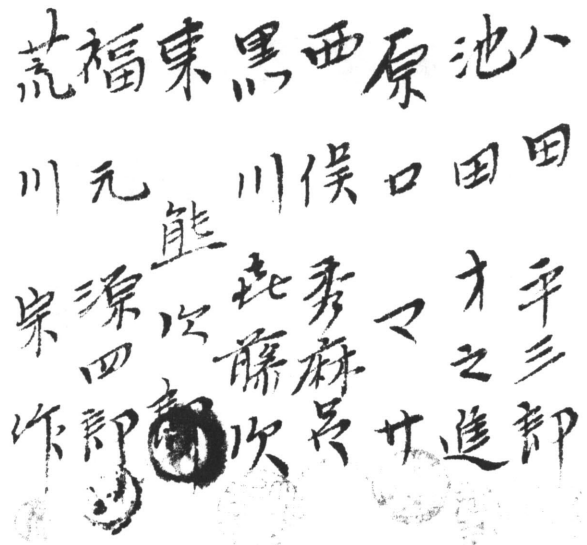 八田平三郎
池田才之進
原口マサ
西俣秀麻呂
黒川喜藤次
東熊次郎
福元源四郎
荒川宗作